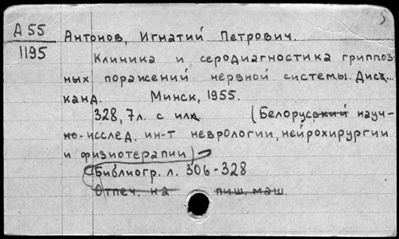 А 55
1195
Антонов, Игнатий Петрович.
Клиника и серодиагностика гриппоз-
ных поражений нервной системы. Дисс.
канд. Минск, 1955.
328, 7л. с илл. (Белорусский науч-
но-исслед. ин-т неврологии, нейрохирургии
и физиотерапии)
Библиогр. л. 306-328
Отпеч. на пиш. маш.